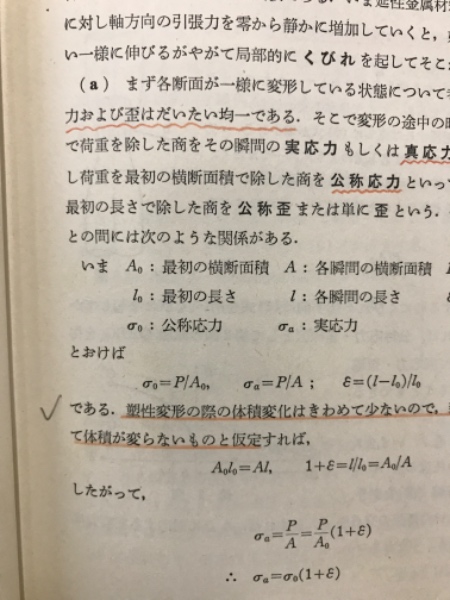 に対し軸方向の引張力を零から静かに増加していくと,
い一様に伸びるがやがて局部的に くびれ を起してそこ
(a) まず各断面が一様に変形している状態について
力および歪はだいたい均一である. そこで変形の途中の
で荷重を除した商をその瞬間の 実応力 もしくは 真応力
し荷重を最初の横断面積で除した商を 公称応力 といっ
最初の長さで除した商を 公称歪 または単に 歪 という.
との間には次のような関係がある.
いま A₀ : 最初の横断面積 A : 各瞬間の横断面積
l₀ : 最初の長さ l : 各瞬間の長さ
σ₀ : 公称応力 σₐ : 実応力
とおけば
σ₀=P/A₀, σₐ=P/A ; ε=(l-l₀)/l₀
である. 塑性変形の際の体積変化はきわめて少ないので,
て体積が変らないものと仮定すれば,
A₀l₀=Al, 1+ε=l/l₀=A₀/A
したがって,
σₐ=P/A=P/A₀(1+ε)
∴ σₐ=σ₀(1+ε)